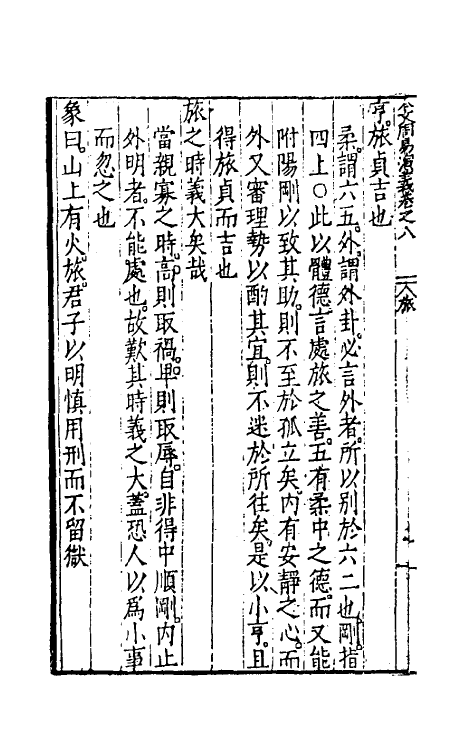 今文周易演義卷之八　　旅
亨。旅貞吉也
柔。謂六五。外。謂外卦。必言外者。所以別於六二也。剛。指
四上○此以體德。言處旅之善。五有柔中之德。而又能
附陽剛以致其助。則不至於孤立矣。内有安靜之心。而
外又審理勢以酌其宜。則不迷於所往矣。是以、小亨。且
得旅貞而吉也
旅之時義大矣哉
當親寡之時。高則取禍。卑則取辱。自非得中順剛。内止
外明者。不能處也。故歎其時義之大。蓋恐人以爲小事
而忽之也
象曰。山上有火。旅。君子以明慎用刑而不留獄